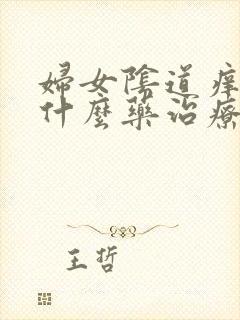 婦女陰道痒
什麼藥治療
王哲